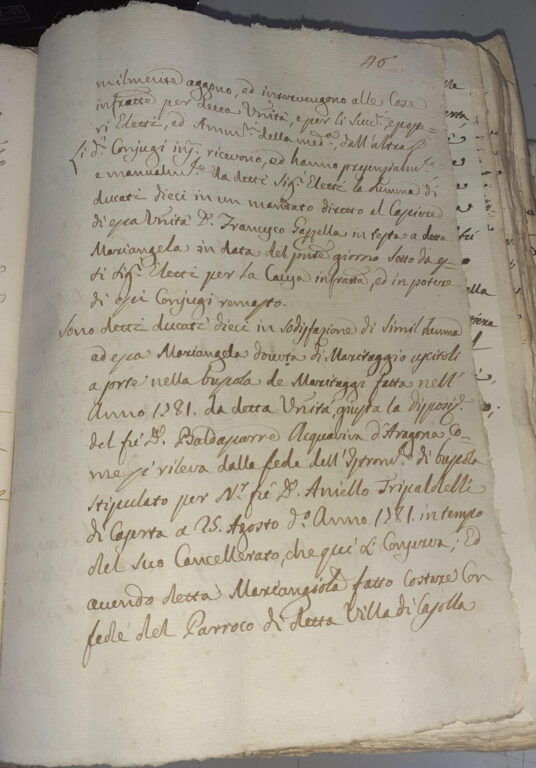 46
milmente aggono, ed intervengono alle Cose
infratte per detta Unità, e per li Succ.ri, e poste-
ri Eletti, ed Amm.ri della med.a, dall'altra
Li d.i Conjugi ricevono, ed hanno presenzialm.te
e manualm.te da detti Sig.ri Eletti la summa di
ducati dieci in un mandato diretto al Cassiere
di essa Unità D. Francesco Gazzella in testa a detta
Mariangela in data del pnte giorno Sotto da es-
si Sig.ri Eletti per la Causa infratta, ed in potere
di essi Conjugi remasto.
Sono detti ducati dieci in Sodisfazione di Simil Summa
ad essa Mariangela dovuta di Maritaggio uscitoli
a sorte nella bussola de Maritaggi fatta nell'
Anno 1781. da detta Unità, giusta la disposiz.e
del fù D. Baldassarre Acquaviva d'Aragona Co-
me si rileva dalla fede dell'Istrom.to di bussola
stipulato per N.r fù D. Aniello Tripaldelli
di Caserta a 25. Agosto d.o Anno 1781. in tempo
del suo Cancellerato, che quì si Conserva; Ed
avendo detta Mariangiola fatto costare Con
fede del Parroco di detta Villa di Casolla